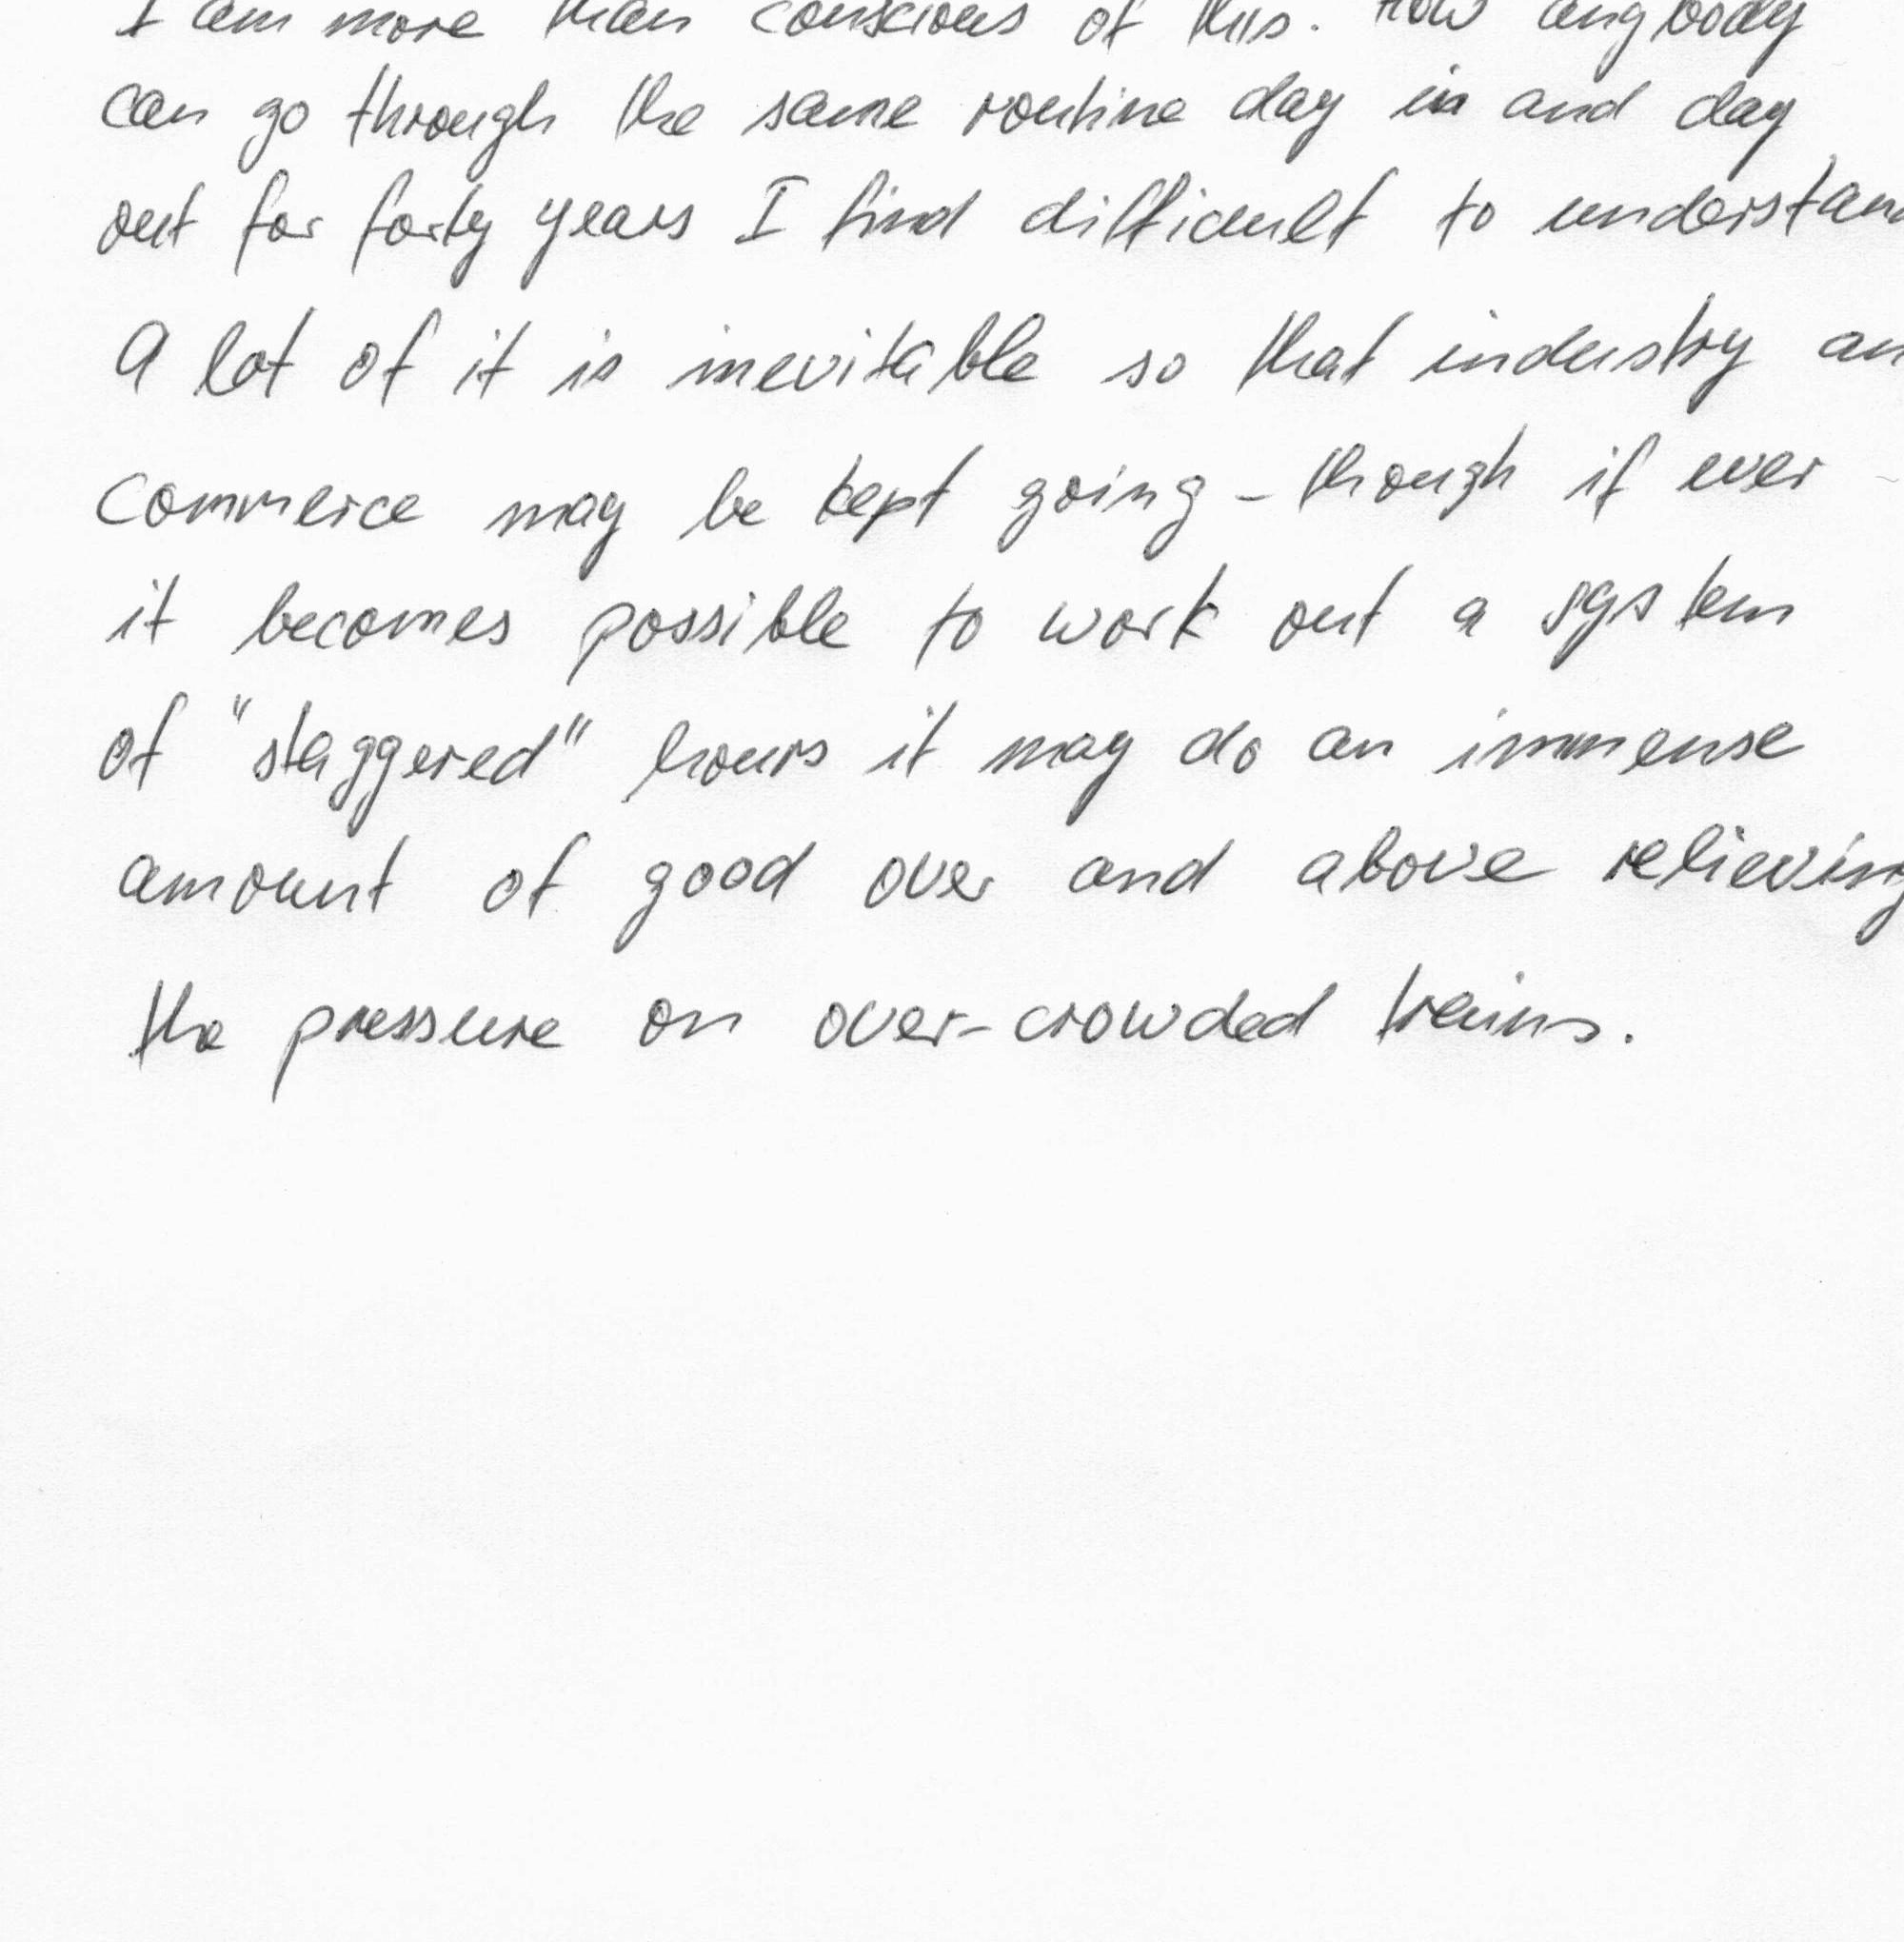 I am more than conscious of this. How anybody
can go through the same routine day in and day
out for forty years I find difficult to understan
A lot of it is inevitable so that industry an
commerce may be kept going - though if ever -
it becomes possible to work out a system
of "staggered" hours it may do an immense
amount of good over and above relieving
the pressure on over-crowded trains.